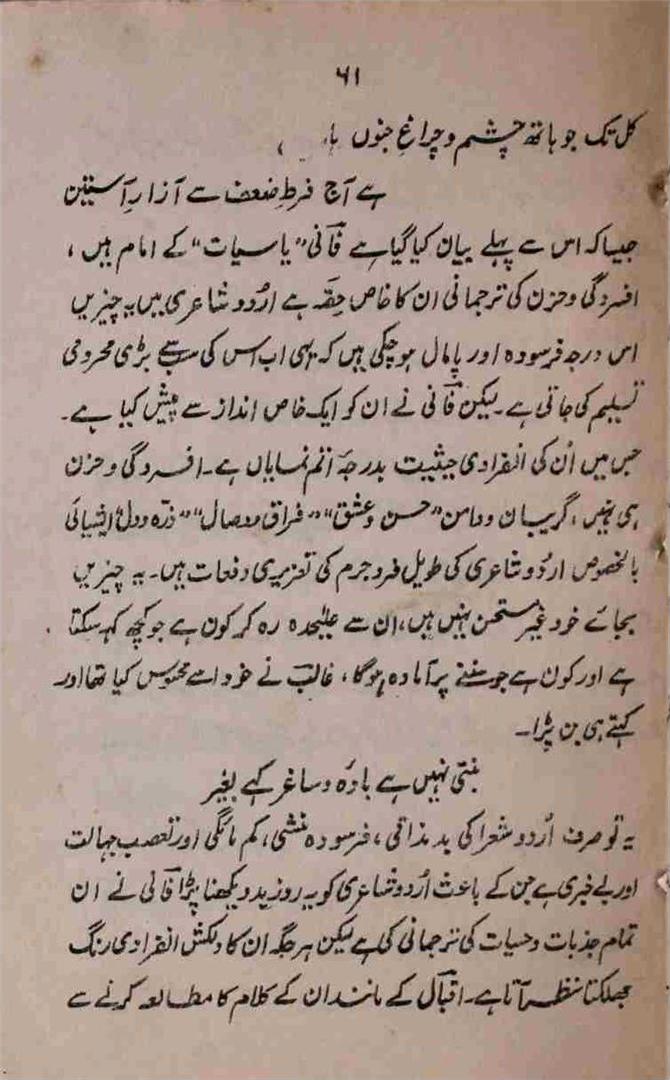 ۶۱
کل تک جو ہاتھ چشم و چراغِ جنوں
ہے آج فرطِ ضعف سے آزارِ آستین
جیسا کہ اس سے پہلے بیان کیا گیا ہے فانی "یاسیات" کے امام ہیں،
افسردگی و حزن کی ترجمانی ان کا خاص حصّہ ہے اُردو شاعری میں یہ چیزیں
اس درجہ فرسودہ اور پامال ہو چکی ہیں کہ یہی اب اس کی سب سے بڑی محرومی
تسلیم کی جاتی ہے۔ لیکن فانی نے ان کو ایک خاص انداز سے پیش کیا ہے۔
جس میں اُن کی انفرادی حیثیت بدرجہ اتم نمایاں ہے۔ افسردگی و حزن
ہی نہیں، گریبان و دامن "حسن و عشق" "فراق و وصال" "ذرہ و دل" ایشیائی
بالخصوص اردو شاعری کی طویل فرد جرم کی تعزیری دفعات ہیں۔ یہ چیزیں
بجائے خود غیر مستحسن نہیں ہیں، ان سے علیٰحدہ رہ کر کون ہے جو کچھ کہہ سکتا
ہے اور کون ہے جو سننے پر آمادہ ہوگا، غالبؔ نے خود اسے محسوس کیا تھا اور
کہتے ہی بن پڑا۔
بنتی نہیں ہے بادہ و ساغر کہے بغیر
یہ تو صرف اُردو شعرا کی بدمذاقی، فرسودہ منشی، کم مائگی اور تعصب جہالت
اور بے خبری ہے جن کے باعث اُردو شاعری کو یہ روز بد دیکھنا پڑا فانی نے ان
تمام جذبات و حسیات کی ترجمانی کی ہے لیکن ہر جگہ ان کا دلکش انفرادی رنگ
جھلکتا نظر آتا ہے۔ اقبالؔ کے مانند ان کے کلام کا مطالعہ کرنے سے